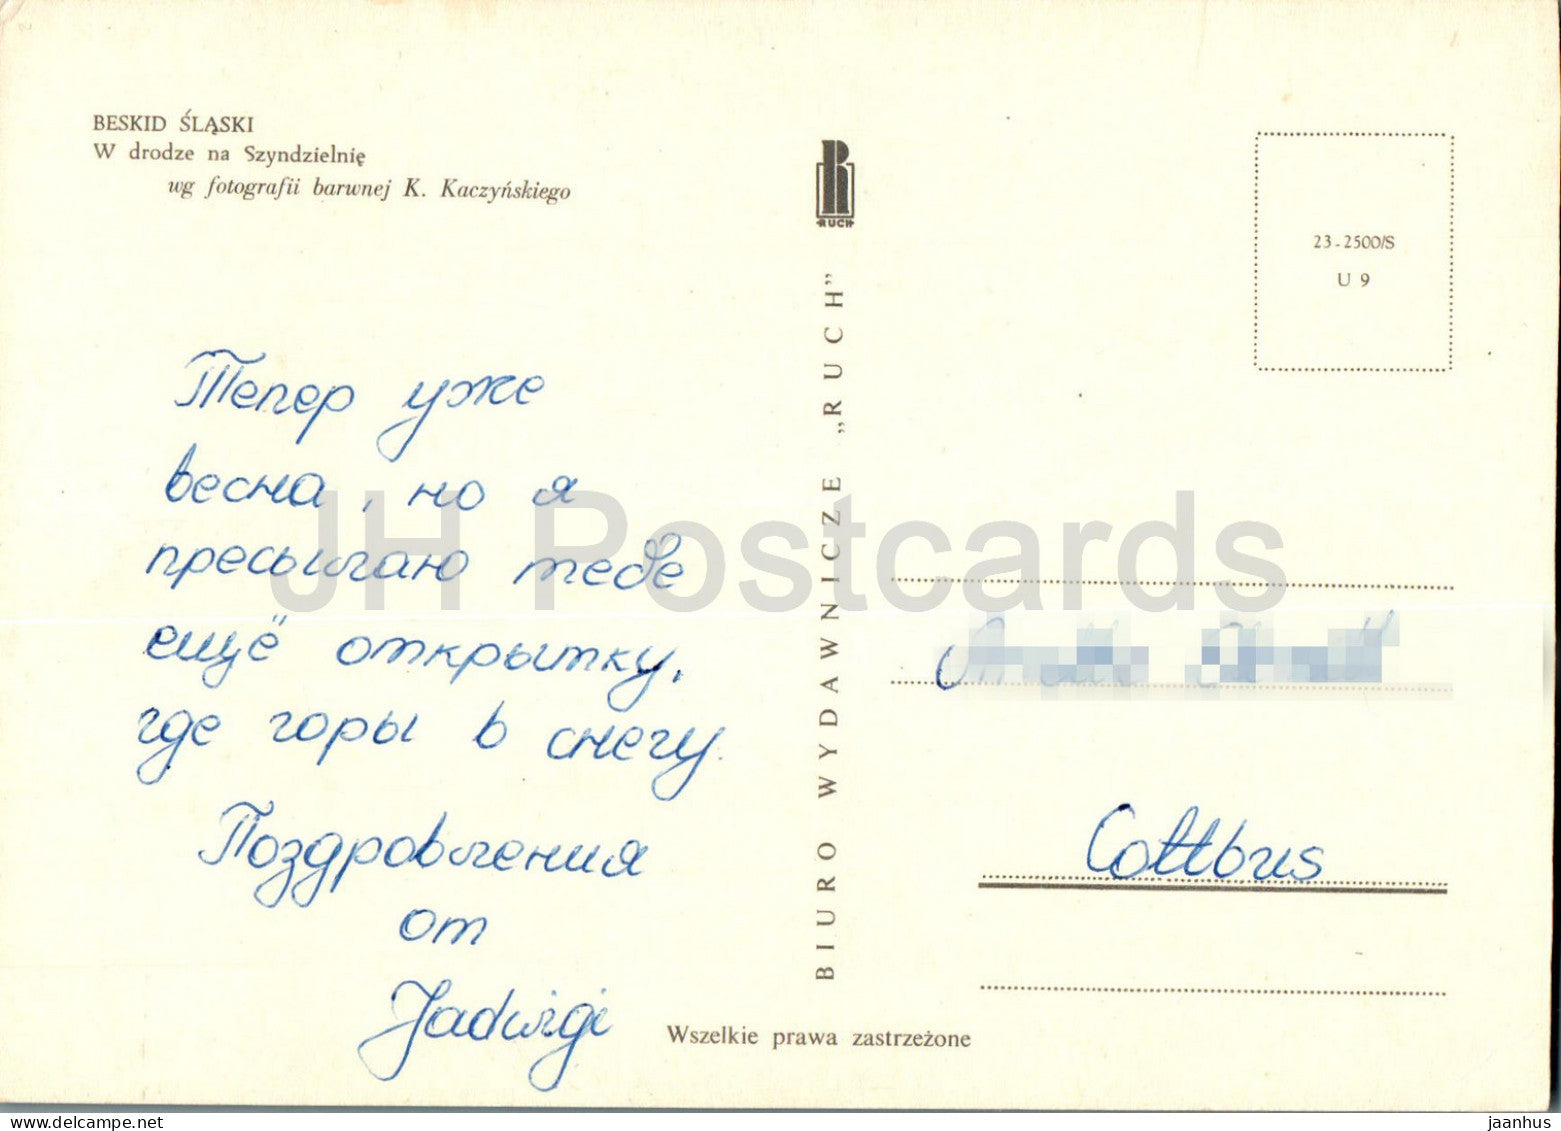 BESKID ŚLĄSKI
W drodze na Szyndzielnię
wg fotografii barwnej K. Kaczyńskiego
Тепер уже
весна, но я
пресылаю тебе
ещё открытку,
где горы в снегу.
Поздровления
от
Jadwigi
RUCH
BIURO WYDAWNICZE „RUCH”
23-2500/S
U 9
Cottbus
Wszelkie prawa zastrzeżone
JH Postcards
www.delcampe.net
jaanhus